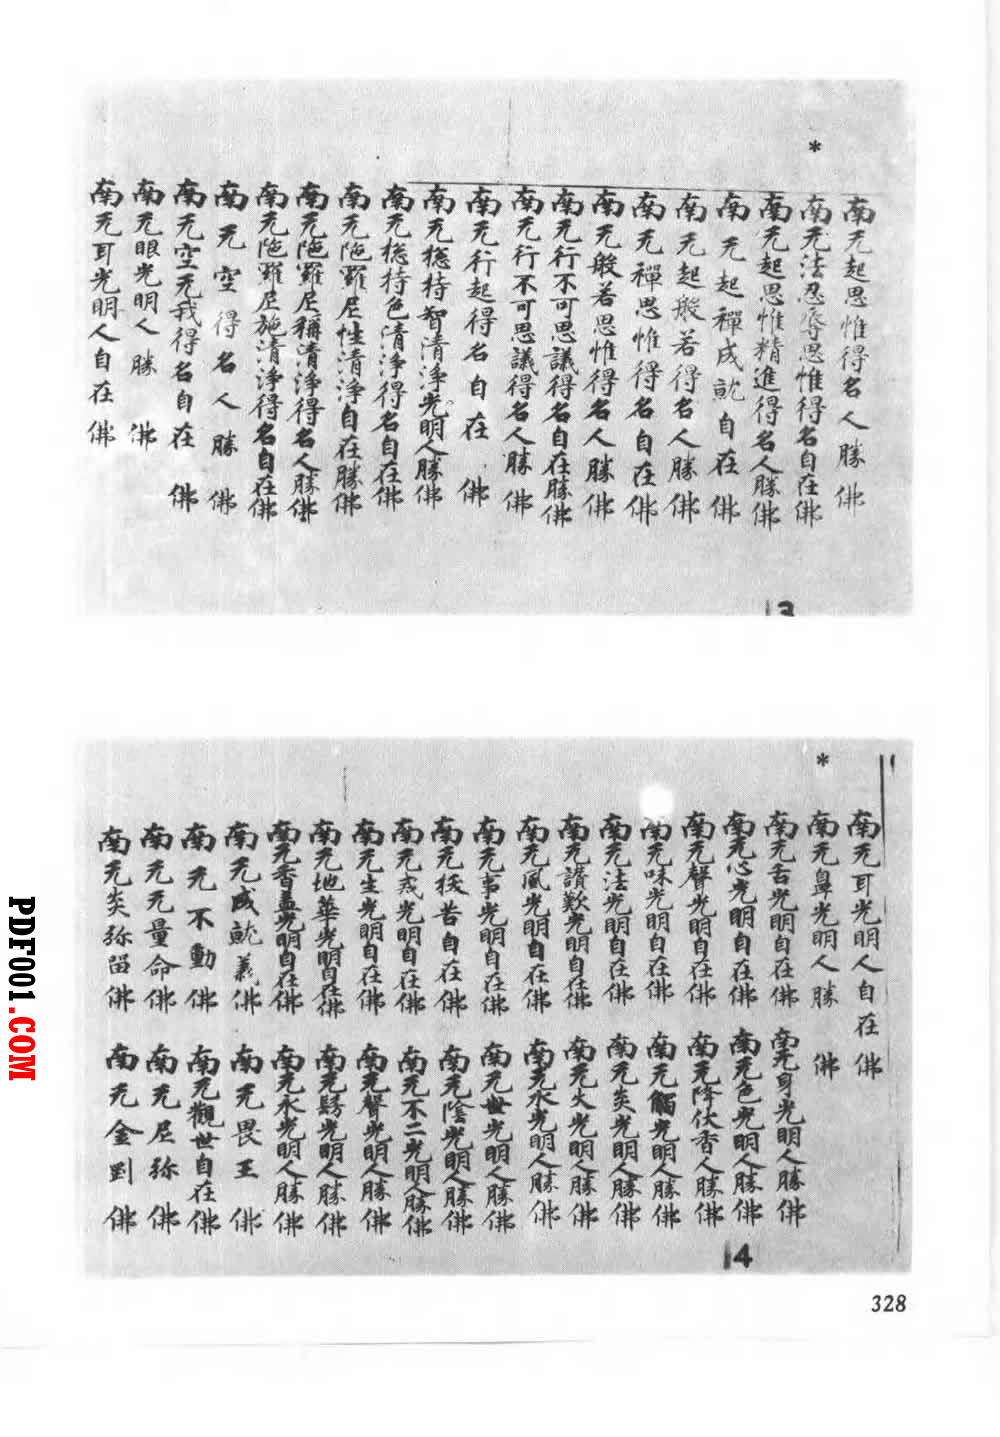 *
南无起思惟得名人勝佛
南无法忍辱思惟得名自在佛
南无起思惟精進得名人勝佛
南无起禪成就自在佛
南无起般若得名人勝佛
南无禪思惟得名自在佛
南无般若思惟得名人勝佛
南无行不可思議得名自在勝佛
南无行不可思議得名人勝佛
南无行起得名自在佛
南无捴持智清淨光明人勝佛
南无捴持色清淨得名自在佛
南无陁羅尼性清淨自在勝佛
南无陁羅尼稱清淨得名人勝佛
南无陁羅尼施清淨得名自在佛
南无空得名人勝佛
南无空无我得名自在佛
南无眼光明人勝佛
南无耳光明人自在佛
13
*
南无耳光明人自在佛
南无鼻光明人勝佛
南无舌光明自在佛 南无身光明人勝佛
南无心光明自在佛 南无色光明人勝佛
南无聲光明自在佛 南无降伏香人勝佛
南无味光明自在佛 南无觸光明人勝佛
南无法光明自在佛 南无炎光明人勝佛
南无讚歎光明自在佛 南无火光明人勝佛
南无風光明自在佛 南无水光明人勝佛
南无事光明自在佛 南无世光明人勝佛
南无苦自在佛 南无陰光明人勝佛
南无光明自在佛 南无不二光明人勝佛
南无生光明自在佛 南无聲光明人勝佛
南无地華光明自在佛 南无光明人勝佛
南无香盖光明自在佛 南无光明人勝佛
南无成就義佛 南无畏王佛
南无不動佛 南无觀世自在佛
南无无量命佛 南无尼弥佛
南无炎弥留佛 南无金剛佛
14
328
PDF001.COM